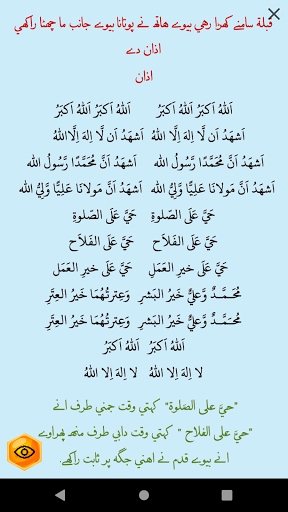 قبلة سامنے كهرا رهي بيوے هاتھ نے پوتانا بيوے جانب ما چهنا راكهي
اذان دے
اذان
اَللهُ اَكبَرُ اَللهُ اَكبَرُ اَللهُ اَكبَرُ اَللهُ اَكبَرُ
اَشهَدُ اَن لَّا اِلهَ اِلَّا اللهُ اَشهَدُ اَن لَّا اِلهَ اِلَّااللهُ
اَشهَدُ اَنَّ مُحَمَّدًا رَّسُولُ الله اَشهَدُ اَنَّ مُحَمَّدًا رَّسُولُ الله
اَشهَدُ اَنَّ مَولانَا عَلِيًّا وَّلِيُّ الله اَشهَدُ اَنَّ مَولانَا عَلِيًّا وَّلِيُّ الله
حَيَّ عَلَى الصَّلوةِ حَيَّ عَلَى الصَّلوةِ
حَيَّ عَلَى الفَلاَحِ حَيَّ عَلَى الفَلاَح
حَيَّ عَلَى خَيرِ العَمَلِ حَيَّ عَلَى خَيرِ العَمَل
مُحَمَّدٌ وَّعَلِيٌّ خَيرُ البَشَرِ وَعِترَتُهُمَا خَيرُ العِتَرِ
مُحَمَّدٌ وَّعَلِيٌّ خَيرُ البَشَرِ وَعِترَتُهُمَا خَيرُ العِتَرِ
اَللهُ اَكبَرُ اَللهُ اَكبَرُ
لا اِلهَ اِلا اللهُ لا اِلهَ اِلا اللهُ
"حيَّ على الصلوة" كهتي وقت جمني طرف انے
"حيَّ على الفلاح" كهتي وقت دابي طرف منھ پهراوے
انے بيوے قدم نے اهني جگه پر ثابت راكهے.